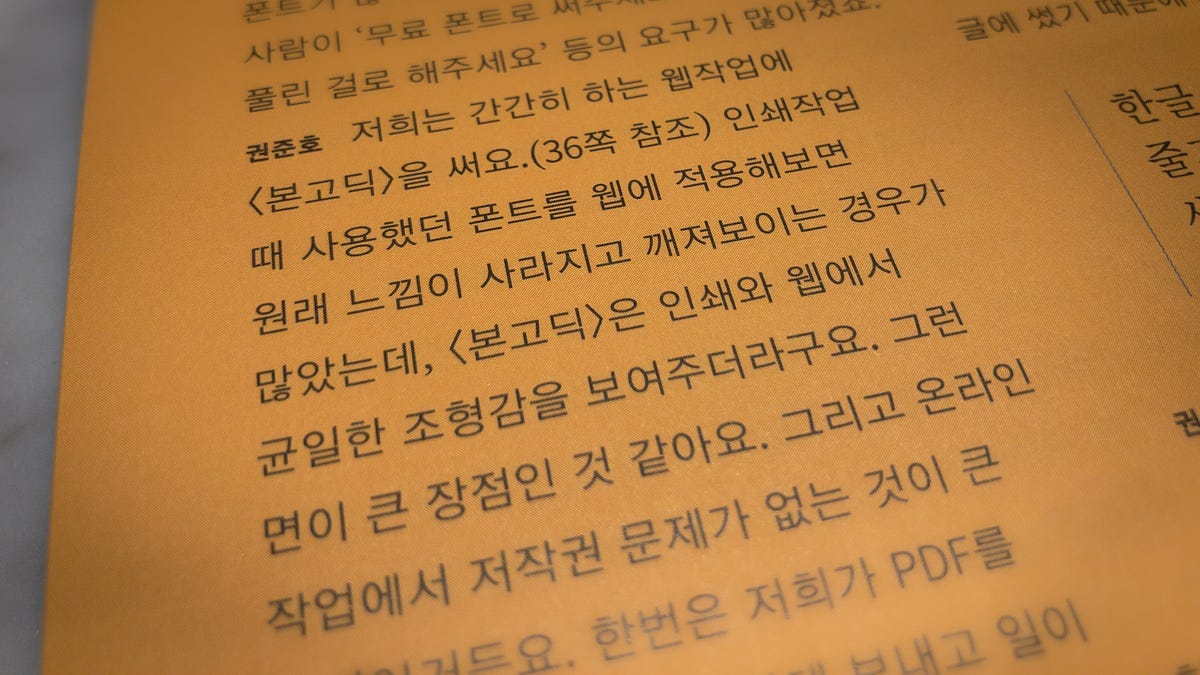 폰트가
사람이 ‘무료 폰트로 써주세요
풀린 걸로 해주세요’ 등의 요구가 많아졌죠.
권준호 저희는 간간히 하는 웹작업에
〈본고딕〉을 써요.(36쪽 참조) 인쇄작업
때 사용했던 폰트를 웹에 적용해보면
원래 느낌이 사라지고 깨져보이는 경우가
많았는데, 〈본고딕〉은 인쇄와 웹에서
균일한 조형감을 보여주더라구요. 그런
면이 큰 장점인 것 같아요. 그리고 온라인
작업에서 저작권 문제가 없는 것이 큰
한번은 저희가 PDF를
보내고 일이
글에 썼기 때문에
한글